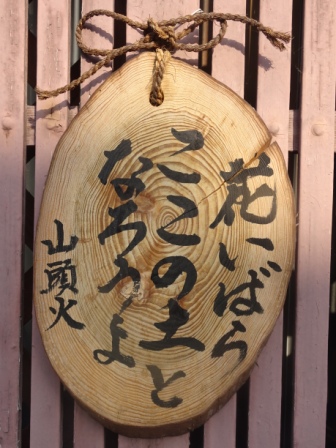 花いばら
ここの土と
なろうよ
山頭火